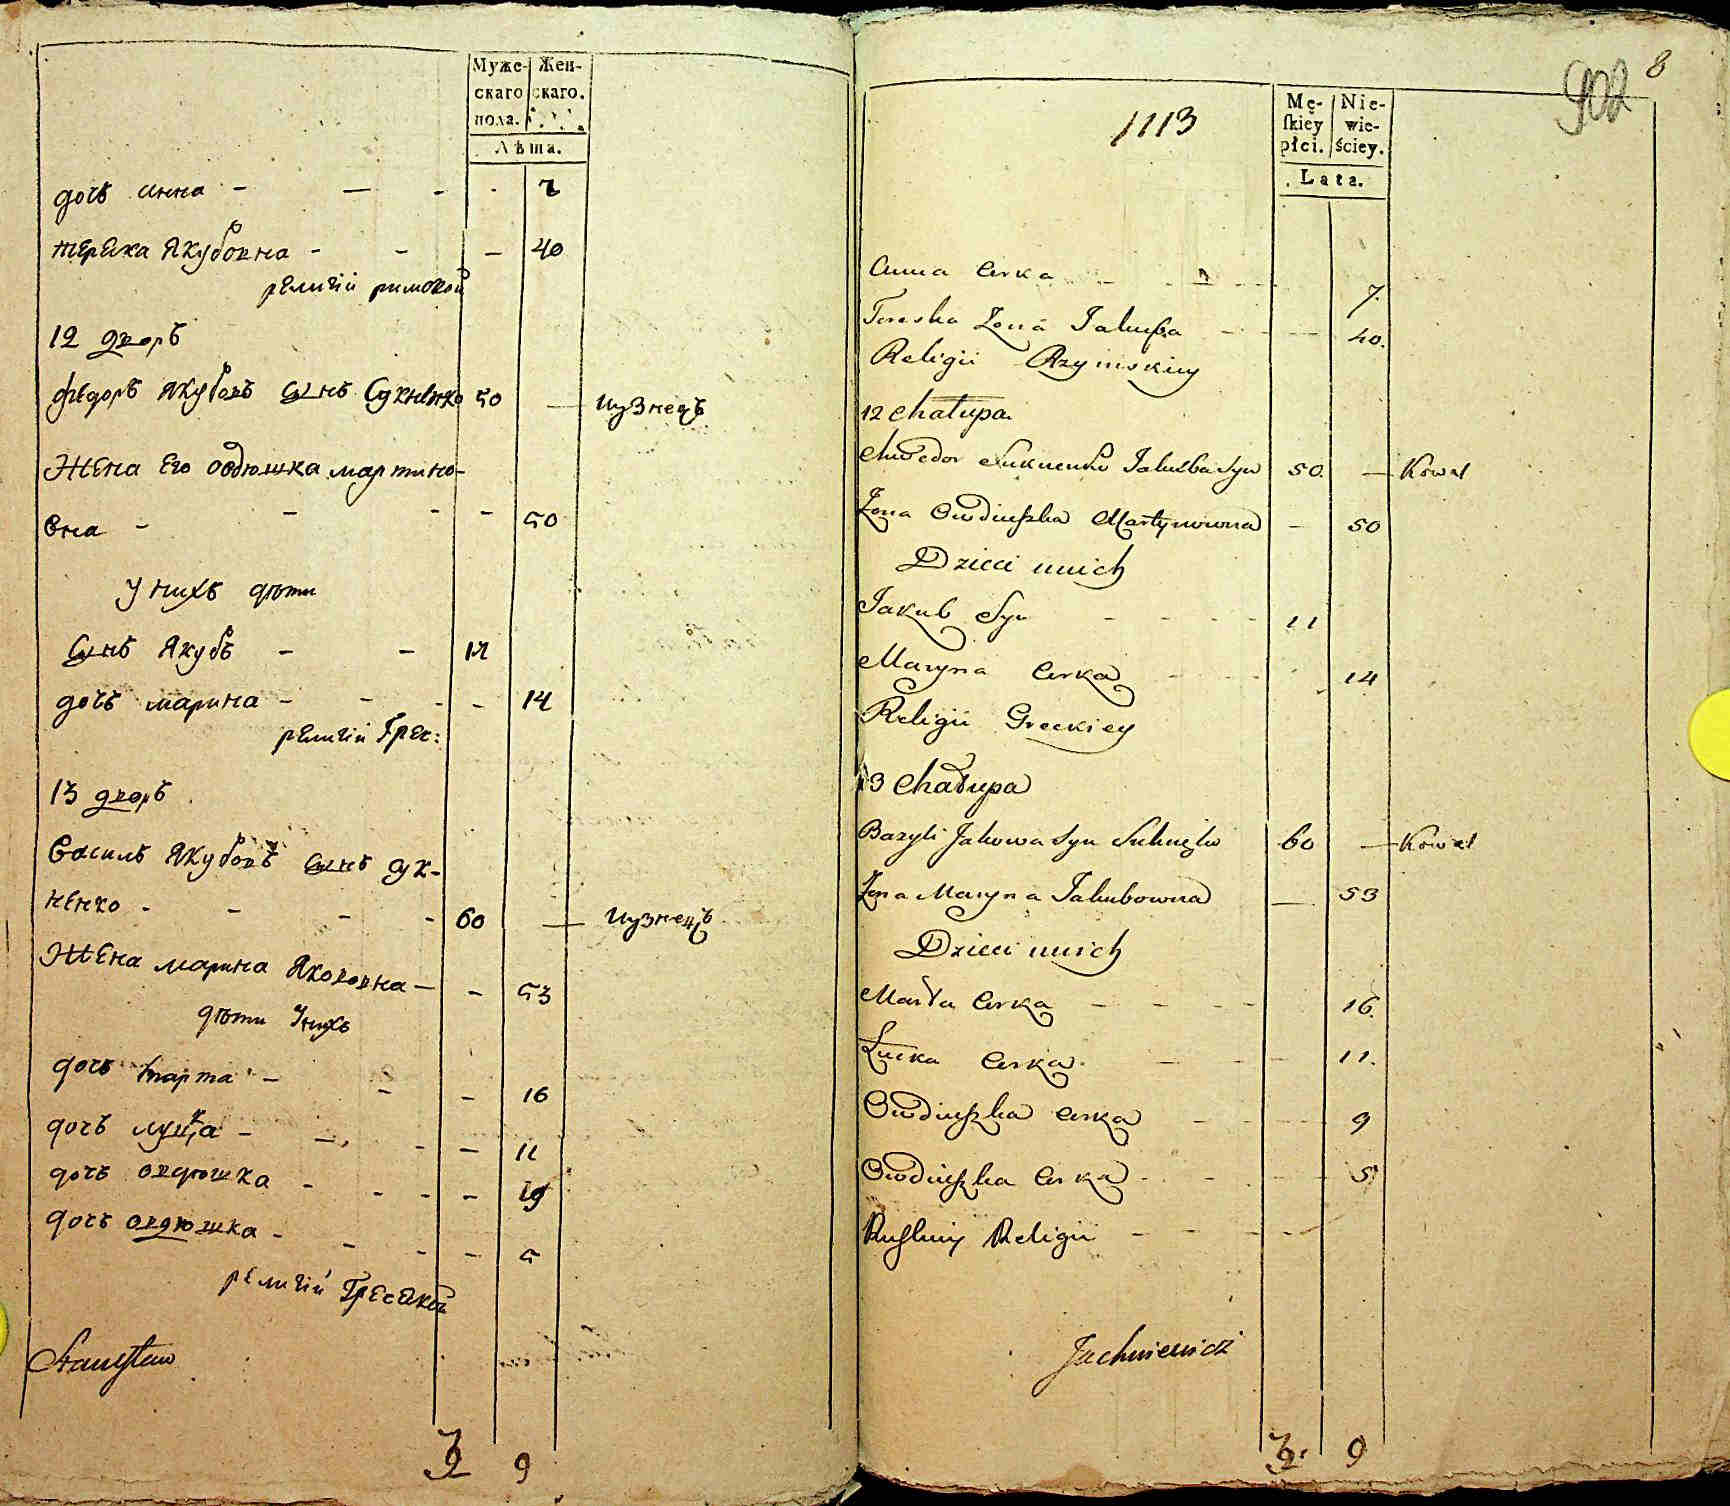 Муже-
скаго
пола.
Жен-
скаго.
Лѣта.
дочь анна - - - 7
тереха Якубовна - - - 40
религіи римской
12 дворъ
федоръ Якубовъ сынъ Сукненко 50 — кузнецъ
Жена Его овдюшка мартино-
вна - - - - 50
у нихъ дѣти
сынъ Якубъ - - 11
дочь марина - - - - 14
религіи Грес:
13 дворъ
Василь Якубовъ сынъ сук-
ненко - - - - 60 — кузнецъ
Жена марина Якововна - - 53
дѣти у нихъ
дочь марта - - - 16
дочь луца - - - - 11
дочь овдюшка - - - - 9
дочь овдюшка - - - - 5
религіи Греческой
Stanisław
9
902
8
1113
Mę-
skiey
płci.
Nie-
wie-
ściey.
Lata.
Anna Corka - - - - 7.
Tereska Zona Jakuba - - - 40.
Religii Rzymskiey
12 Chałupa
Chwedor Suknenko Jakuba Syn 50. — Kowal
Zona Owdiuszka Martynowna - 50
Dzieci u nich
Jakub Syn - - - - 11
Maryna Corka - - - - 14
Religii Greckiey
13 Chałupa
Bazyli Jakowa Syn Suknenko 60 — Kowal
Zona Maryna Jakubowna — 53
Dzieci u nich
Marta Corka - - - - 16.
Łucka Corka. - - - 11.
Owdiuszka Corka - - - - 9
Owdiuszka Corka - - - - 5
Ruskiey Religii - - - -
Jachniewicz
9